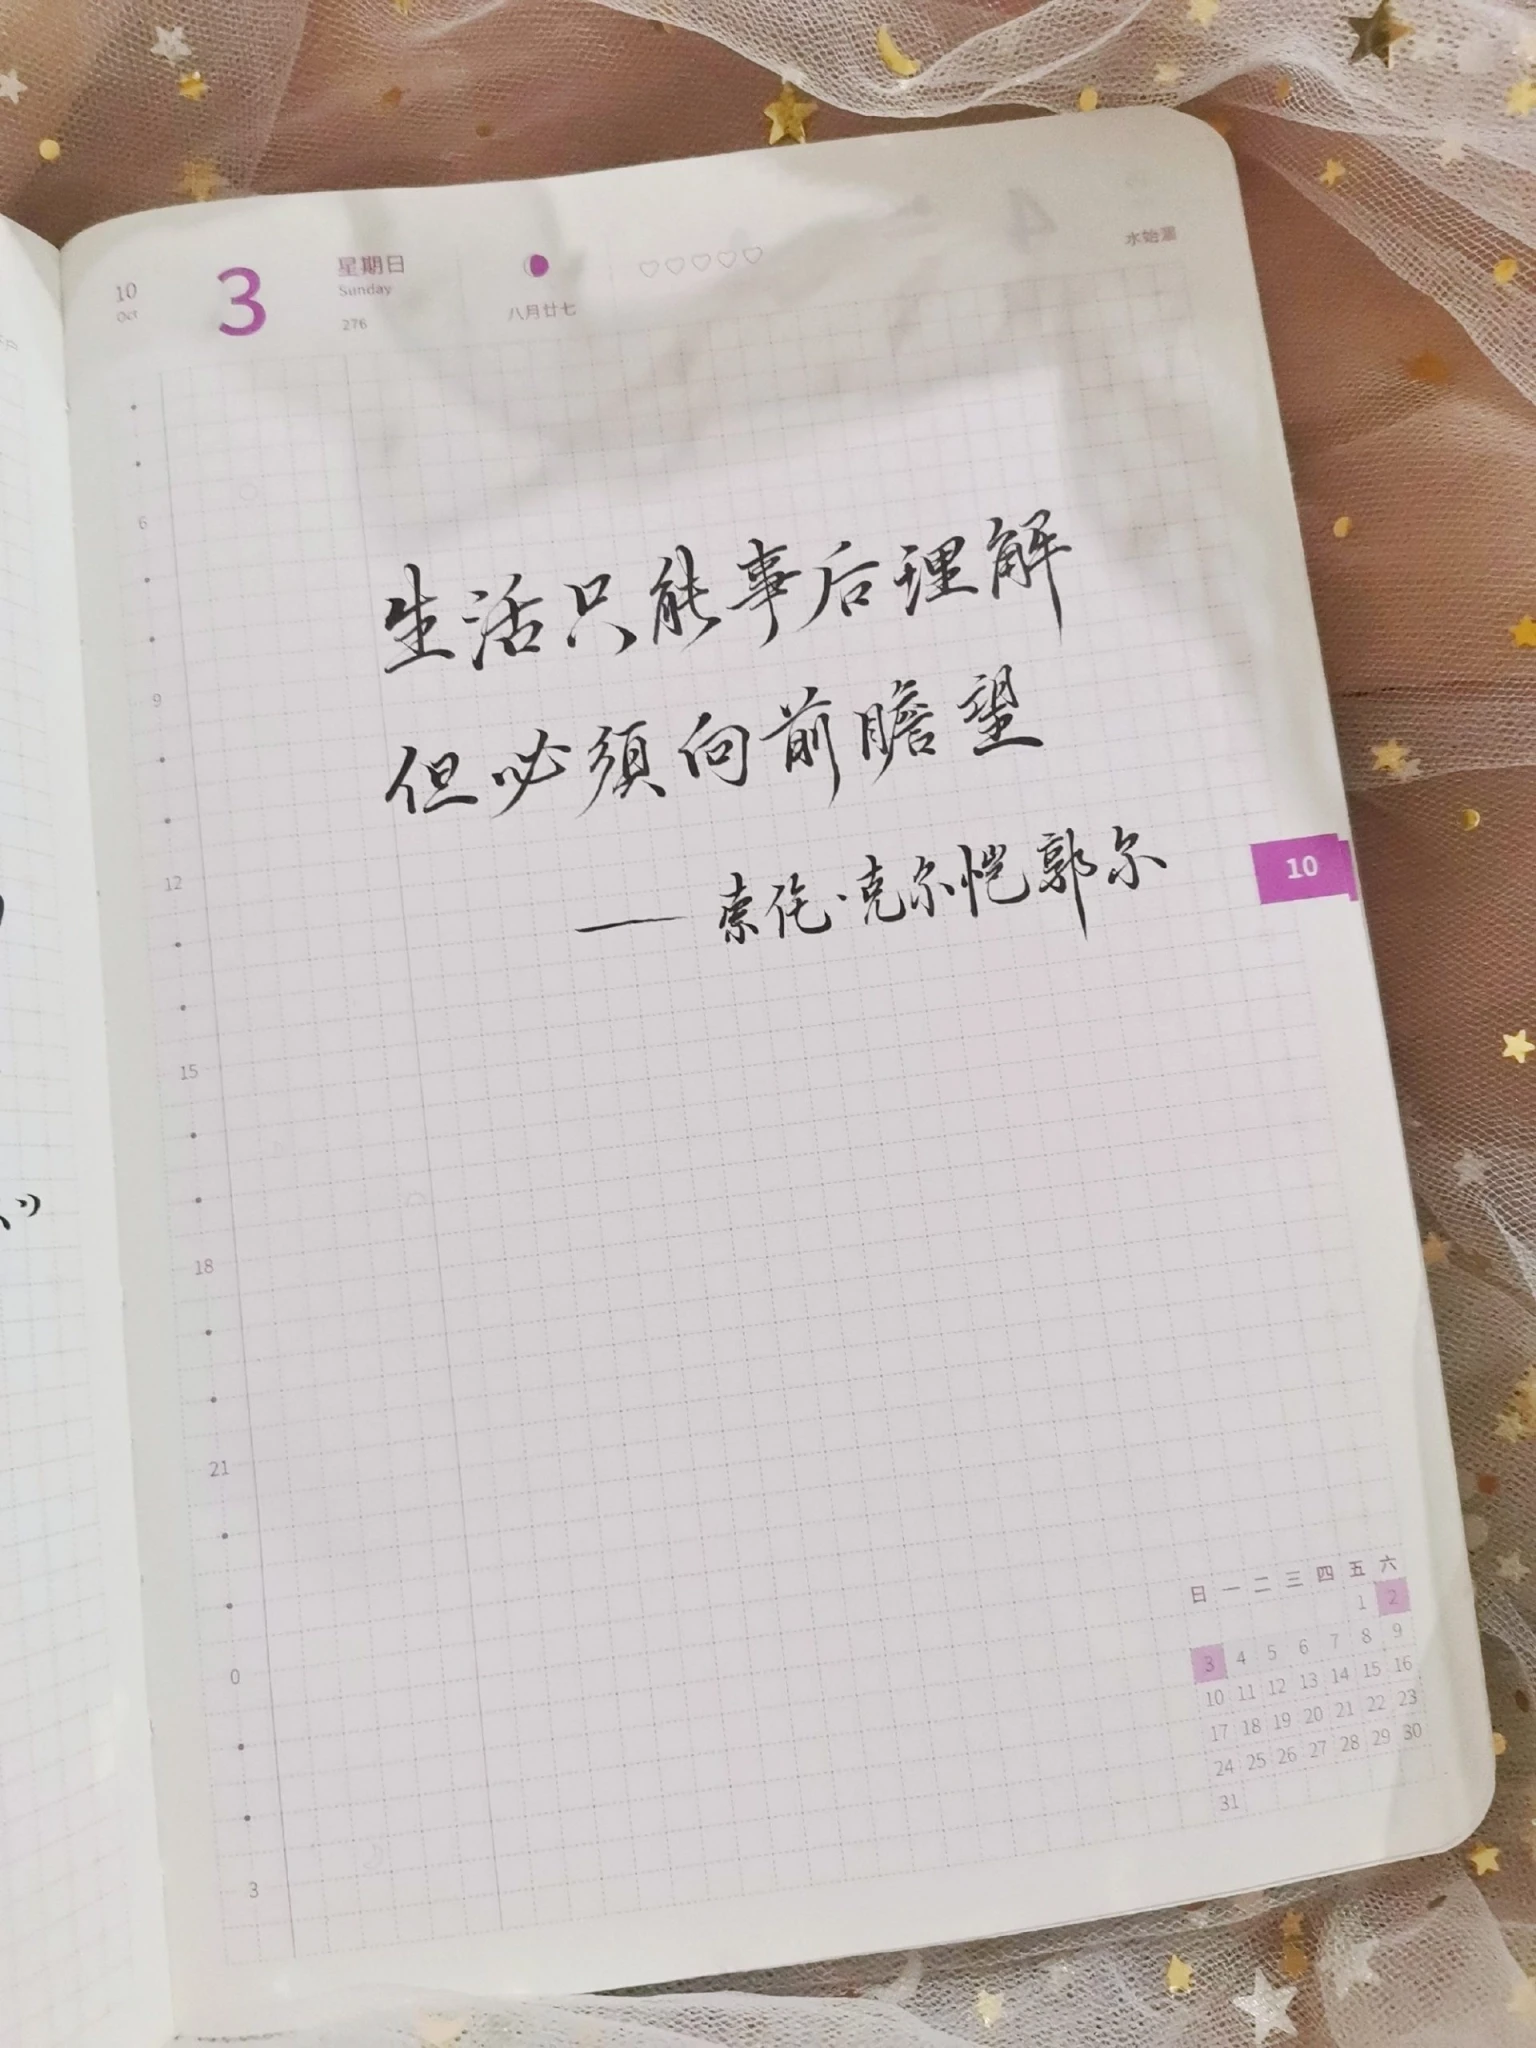 10
Oct
3
星期日
Sunday
276
八月廿七
水始涸
6
9
12
15
18
21
0
3
生活只能事后理解
但必须向前瞻望
——索伦·克尔恺郭尔
10
日 一 二 三 四 五 六
1 2
3 4 5 6 7 8 9
10 11 12 13 14 15 16
17 18 19 20 21 22 23
24 25 26 27 28 29 30
31